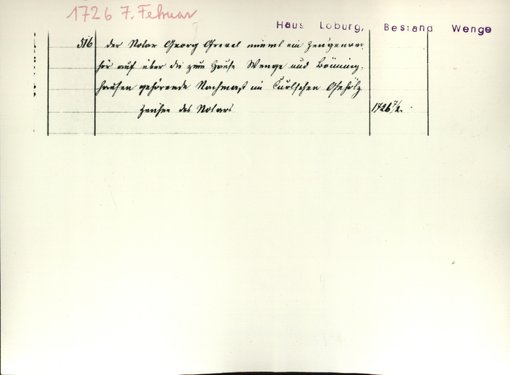 1726 7. Februar
Haus Loburg, Bestand Wenge
516 der Notar Georg Grevel nimmt ein Zeugenver-
hör auf über die zum Hause Wenge und Bönning-
hausen gehörende Nachmast im Curlschen Oheholz
des Notars 1726 7/2.